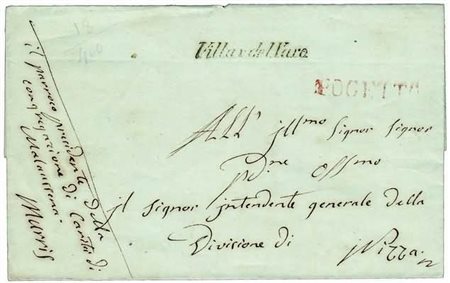 18
Villar del Varo
FOGETTO
All' Illmo Signor Signor
Pne Ossmo
il Signor intendente generale della
Divisione di Nizza
il parroco presidente della
congregazione di Carità di
Malaussena
Marris